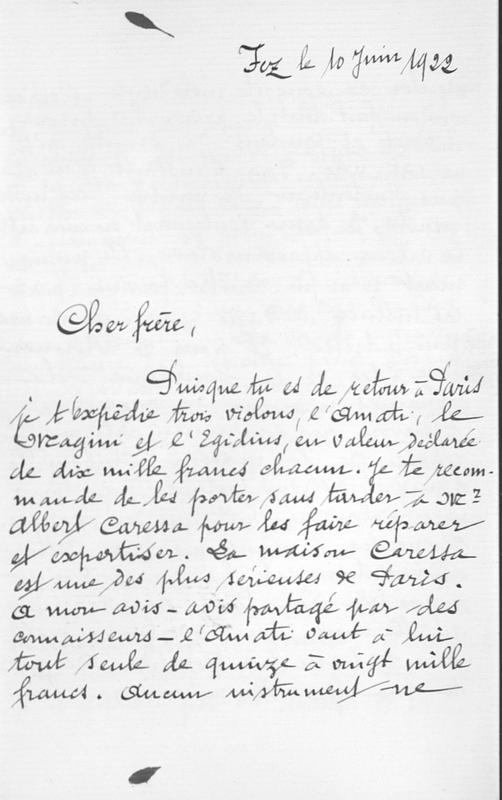 Fez le 10 Juin 1922
Cher frère,
Puisque tu es de retour à Paris
je t'expédie trois violons, l'Amati, le
Magini et l'Egidius, en valeur déclarée
de dix mille francs chacun. Je te recom-
mande de les porter sans tarder à Mr
Albert Caressa pour les faire réparer
et expertiser. La maison Caressa
est une des plus sérieuses de Paris.
A mon avis - avis partagé par des
connaisseurs - l'Amati vaut à lui
tout seule de quinze à vingt mille
francs. Aucun instrument ne